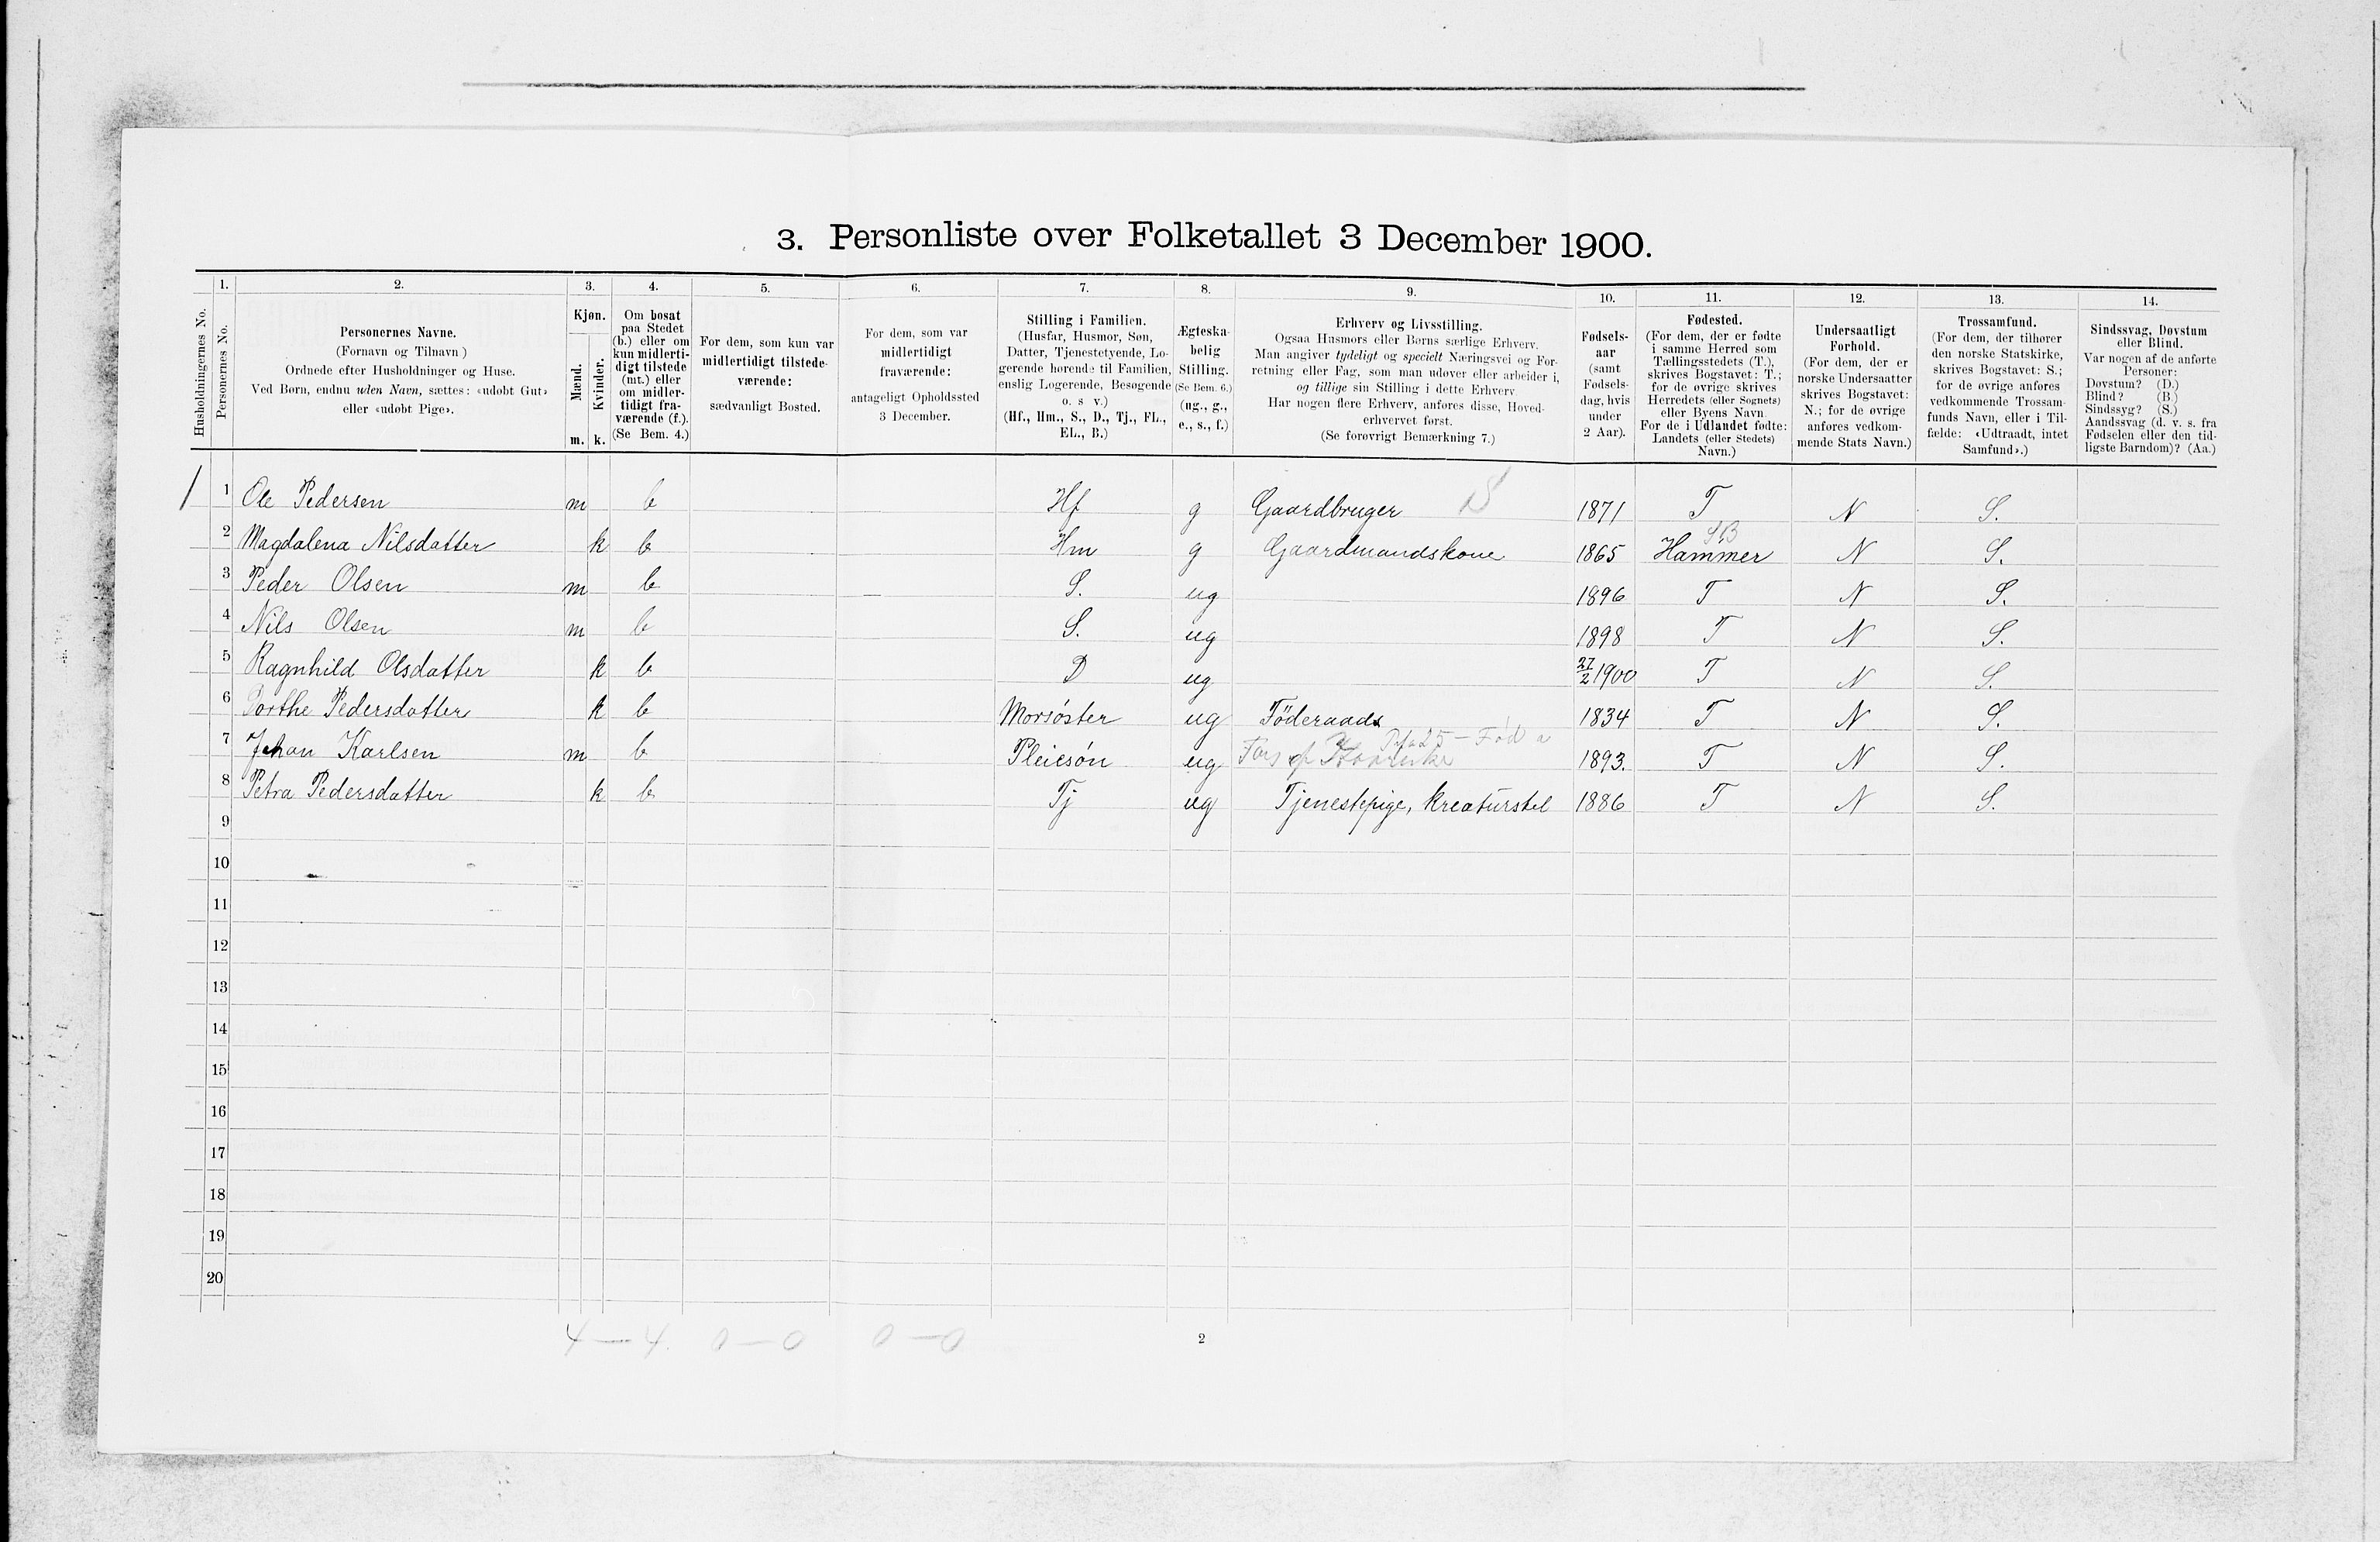 3. Personliste over Folketallet 3 December 1900.
Husholdningernes No.
1. Personernes No.
2. Personernes Navne.
(Fornavn og Tilnavn)
Ordnede efter Husholdninger og Huse.
Ved Børn, endnu uden Navn, sættes: «udøbt Gut»
eller «udøbt Pige».
3. Kjøn.
Mænd. m.
Kvinder. k.
4. Om bosat
paa Stedet
(b.) eller om
kun midlerti-
digt tilstede
(mt.) eller
om midler-
tidigt fra-
værende (f.).
(Se Bem. 4.)
5. For dem, som kun var
midlertidigt tilstede-
værende:
sædvanligt Bosted.
6. For dem, som var
midlertidigt
fraværende:
antageligt Opholdssted
3 December.
7. Stilling i Familien.
(Husfar, Husmor, Søn,
Datter, Tjenestetyende, Lo-
gerende hørende til Familien,
enslig Logerende, Besøgende
o. s v.)
(Hf., Hm., S., D., Tj., FL.,
EL., B.)
8. Ægteska-
belig
Stilling.
(Se Bem. 6.)
(ug., g.,
e., s., f.)
9. Erhverv og Livsstilling.
Ogsaa Husmors eller Børns særlige Erhverv.
Man angiver tydeligt og specielt Næringsvei og For-
retning eller Fag, som man udøver eller arbeider i,
og tillige sin Stilling i dette Erhverv.
Har nogen flere Erhverv, anføres disse, Hoved-
erhvervet først.
(Se forøvrigt Bemærkning 7.)
10. Fødsels-
aar
(samt
Fødsels-
dag, hvis
under
2 Aar).
11. Fødested.
(For dem, der er fødte
i samme Herred som
Tællingsstedets (T.),
skrives Bogstavet: T.;
for de øvrige skrives
Herredets (eller Sognets)
eller Byens Navn.
For de i Udlandet fødte:
Landets (eller Stedets)
Navn.)
12. Undersaatligt
Forhold.
(For dem, der er
norske Undersaatter
skrives Bogstavet:
N.; for de øvrige
anføres vedkom-
mende Stats Navn.)
13. Trossamfund.
(For dem, der tilhører
den norske Statskirke,
skrives Bogstavet: S.;
for de øvrige anføres
vedkommende Trossam-
funds Navn, eller i Til-
fælde: «Udtraadt, intet
Samfund».)
14. Sindssvag, Døvstum
eller Blind.
Var nogen af de anførte
Personer:
Døvstum? (D.)
Blind? (B.)
Sindssyg? (S.)
Aandssvag (d. v. s. fra
Fødselen eller den tid-
ligste Barndom)? (Aa.)
1 1 Ole Pedersen m b Hf g Gaardbruger S 1871 T N S.
2 Magdalena Nilsdatter k b Hm g Gaardmandskone 1865 Hammer N S.
3 Peder Olsen m b S. ug 1896 T N S.
4 Nils Olsen m b S. ug 1898 T N S.
5 Ragnhild Olsdatter k b D ug 27/2 1900 T N S.
6 Dorthe Pedersdatter k b Morsöster ug Föderaads 1834 T N S.
7 Johan Karlsen m b Pleiesön ug 1893. T N S.
8 Petra Pedersdatter k b Tj ug Tjenestepige, kreaturstel 1886 T N S.
9
10
11
12
13
14
15
16
17
18
19
20
4 — 4. 0 — 0 0 — 0
2